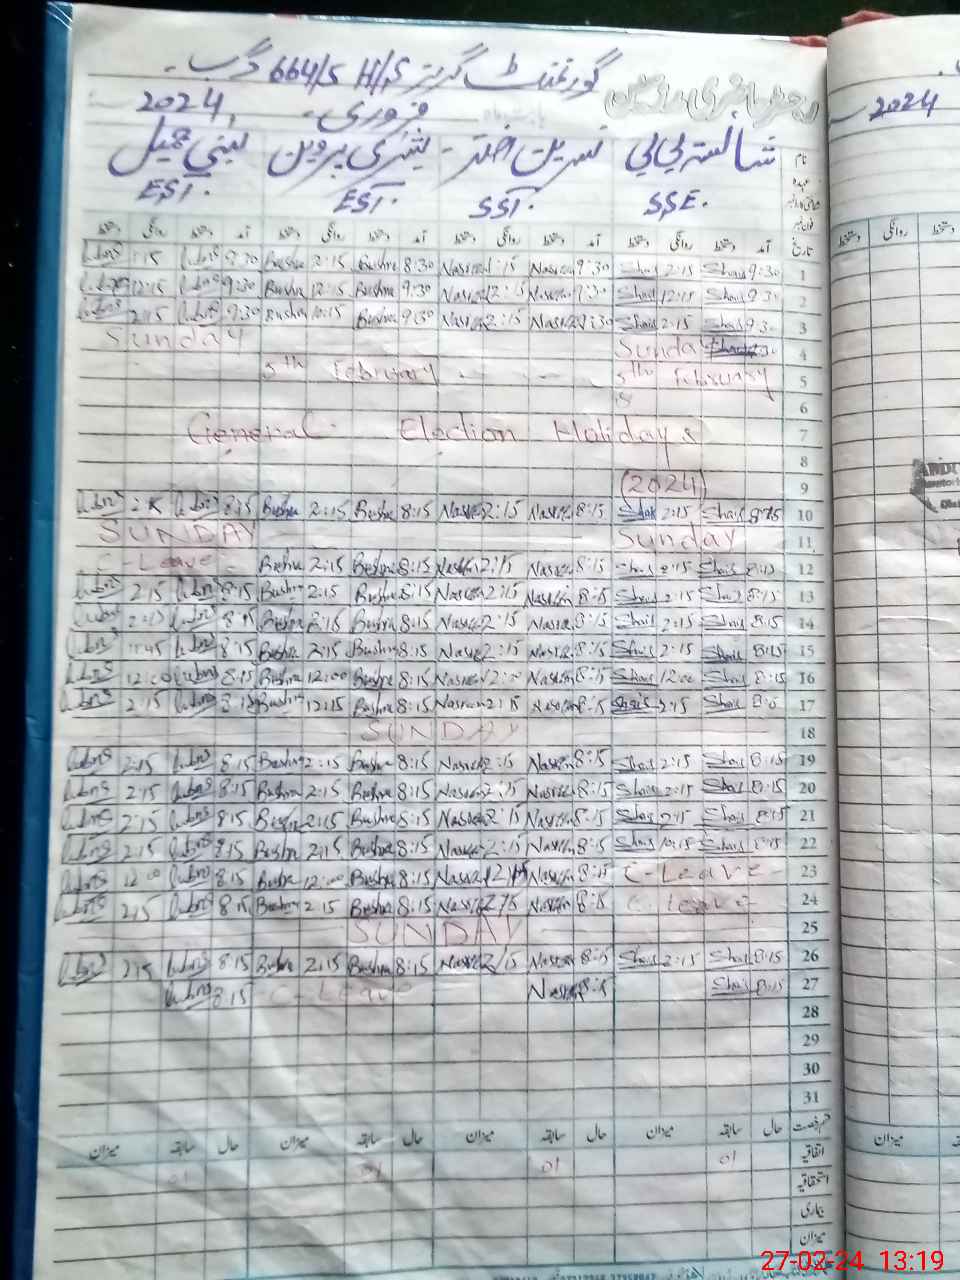 رجسٹر حاضری مدرسین گورنمنٹ گرلز H/S 664/5 گ ب۔
فروری۔ 2024,
2024
نام شائستہ بی بی نسرین اختر بشریٰ پروین لبنیٰ جمیل
عہدہ SSE. SST. EST. EST.
تاریخ آمد دستخط روانگی دستخط آمد دستخط روانگی دستخط آمد دستخط روانگی دستخط آمد دستخط روانگی دستخط
روانگی دستخط
1 9:30 Shais 2:15 Shais 9:30 Nasreen 1:15 Nasreen 8:30 Bushra 2:15 Bushra 9:30 Lubna 1:15 Lubna
2 9:30 Shais 12:15 Shais 9:30 Nasreen 12:15 Nasreen 9:30 Bushra 12:15 Bushra 9:30 Lubna 12:15 Lubna
3 9:30 Shais 2:15 Shais 9:30 Nasreen 2:15 Nasreen 9:30 Bushra 10:15 Bushra 9:30 Lubna 2:15 Lubna
4 Sunday Sunday
5 5th February 5th February
6
7 General Election Holidays
8
9 (2024)
10 8:15 Shais 2:15 Shais 8:15 Nasreen 2:15 Nasreen 8:15 Bushra 2:15 Bushra 8:15 Lubna 2:15 Lubna
11 Sunday SUNDAY
12 8:15 Shais 2:15 Shais 8:15 Nasreen 2:15 Nasreen 8:15 Bushra 2:15 Bushra C-Leave
13 8:15 Shais 2:15 Shais 8:15 Nasreen 2:15 Nasreen 8:15 Bushra 2:15 Bushra 8:15 Lubna 2:15 Lubna
14 8:15 Shais 2:15 Shais 8:15 Nasreen 2:15 Nasreen 8:15 Bushra 2:15 Bushra 8:15 Lubna 2:15 Lubna
15 8:15 Shais 2:15 Shais 8:15 Nasreen 2:15 Nasreen 8:15 Bushra 2:15 Bushra 8:15 Lubna 1:45 Lubna
16 8:15 Shais 12:00 Shais 8:15 Nasreen 12:00 Nasreen 8:15 Bushra 12:00 Bushra 8:15 Lubna 12:00 Lubna
17 Shais 2:15 Shais 8:15 Nasreen 2:15 Nasreen 8:15 Bushra 12:15 Bushra 8:15 Lubna 2:15 Lubna
18 SUNDAY
19 8:15 Shais 2:15 Shais 8:15 Nasreen 2:15 Nasreen 8:15 Bushra 2:15 Bushra 8:15 Lubna 2:15 Lubna
20 8:15 Shais 2:15 Shais 8:15 Nasreen 2:15 Nasreen 8:15 Bushra 2:15 Bushra 8:15 Lubna 2:15 Lubna
21 8:15 Shais 2:15 Shais 8:15 Nasreen 2:15 Nasreen 8:15 Bushra 2:15 Bushra 8:15 Lubna 2:15 Lubna
22 8:15 Shais 10:15 Shais 8:15 Nasreen 2:15 Nasreen 8:15 Bushra 2:15 Bushra 8:15 Lubna 2:15 Lubna
23 C-Leave- 8:15 Nasreen Nasreen 8:15 Bushra 12:00 Bushra 8:15 Lubna 12:00 Lubna
24 C. Leave- 8:15 Nasreen 2:15 Nasreen 8:15 Bushra 2:15 Bushra 8:15 Lubna 2:15 Lubna
25 SUNDAY
26 8:15 Shais 2:15 Shais 8:15 Nasreen 2:15 Nasreen 8:15 Bushra 2:15 Bushra 8:15 Lubna 2:15 Lubna
27 8:15 Shais 8:15 Nasreen C-Leave 8:15 Lubna
28
29
30
31
قسم رخصت حال سابقہ میزان حال سابقہ میزان حال سابقہ میزان حال سابقہ میزان
میزان
اتفاقیہ 01 01 01 01
استحقاقیہ
بیماری
میزان
27-02-24 13:19